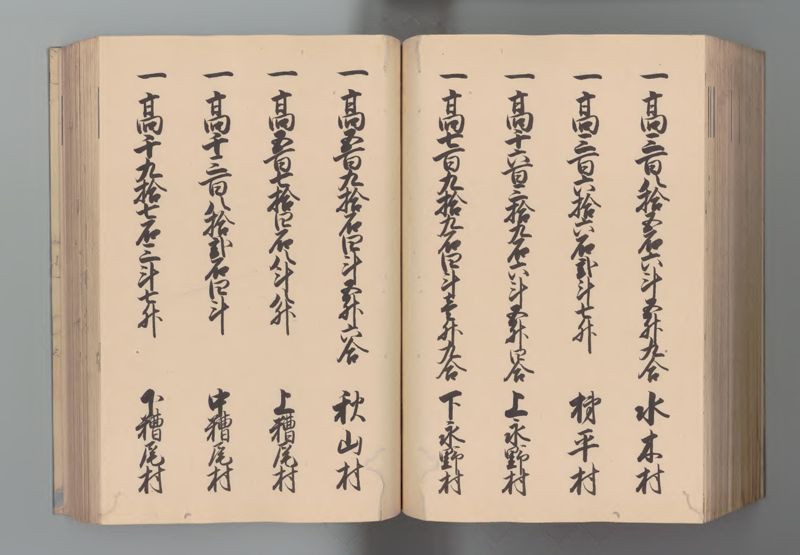 一高三百八拾五石六斗五升九合 水木村
一高三百六拾六石弐斗七升 梯平村
一高千六百三拾九石六斗五升四合 上永野村
一高七百九拾九石四斗壱升九合 下永野村
一高五百九拾石四斗五升六合 秋山村
一高五百七拾四石八斗八升 上糟尾村
一高千三百八拾弐石四斗 中糟尾村
一高千九拾七石三斗七升 下糟尾村